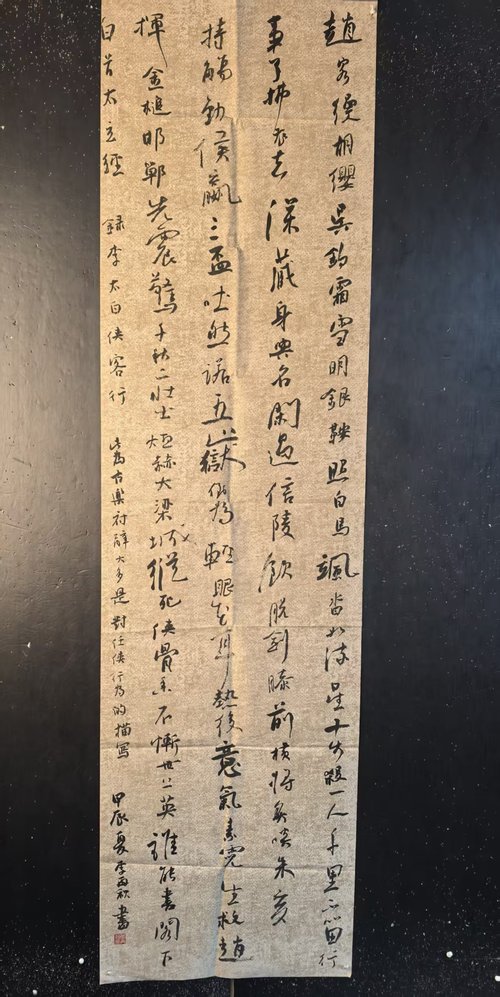 趙客縵胡纓吳鉤霜雪明銀鞍照白馬颯沓如流星十步殺一人千里不留行
事了拂衣去深藏身與名閑過信陵飲脫劍膝前橫將炙啖朱亥
持觴勸侯嬴三盃吐然諾五嶽倒為輕眼花耳熱後意氣素霓生救趙
揮金槌邯鄲先震驚千秋二壯士烜赫大梁城縱死俠骨香不慚世上英誰能書閣下
白首太玄經 錄李太白俠客行 此為古樂府辭大多是對任俠行為的描寫 甲辰夏李書